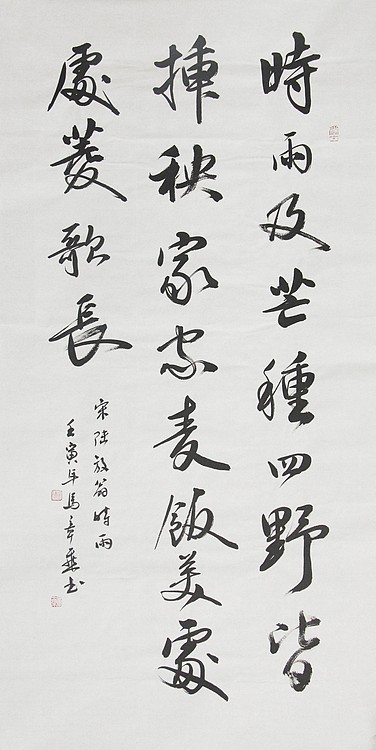 時雨及芒種四野皆
插秧家家麦飯美處
處菱歌長
宋陸放翁時雨
壬寅年馬章乘书